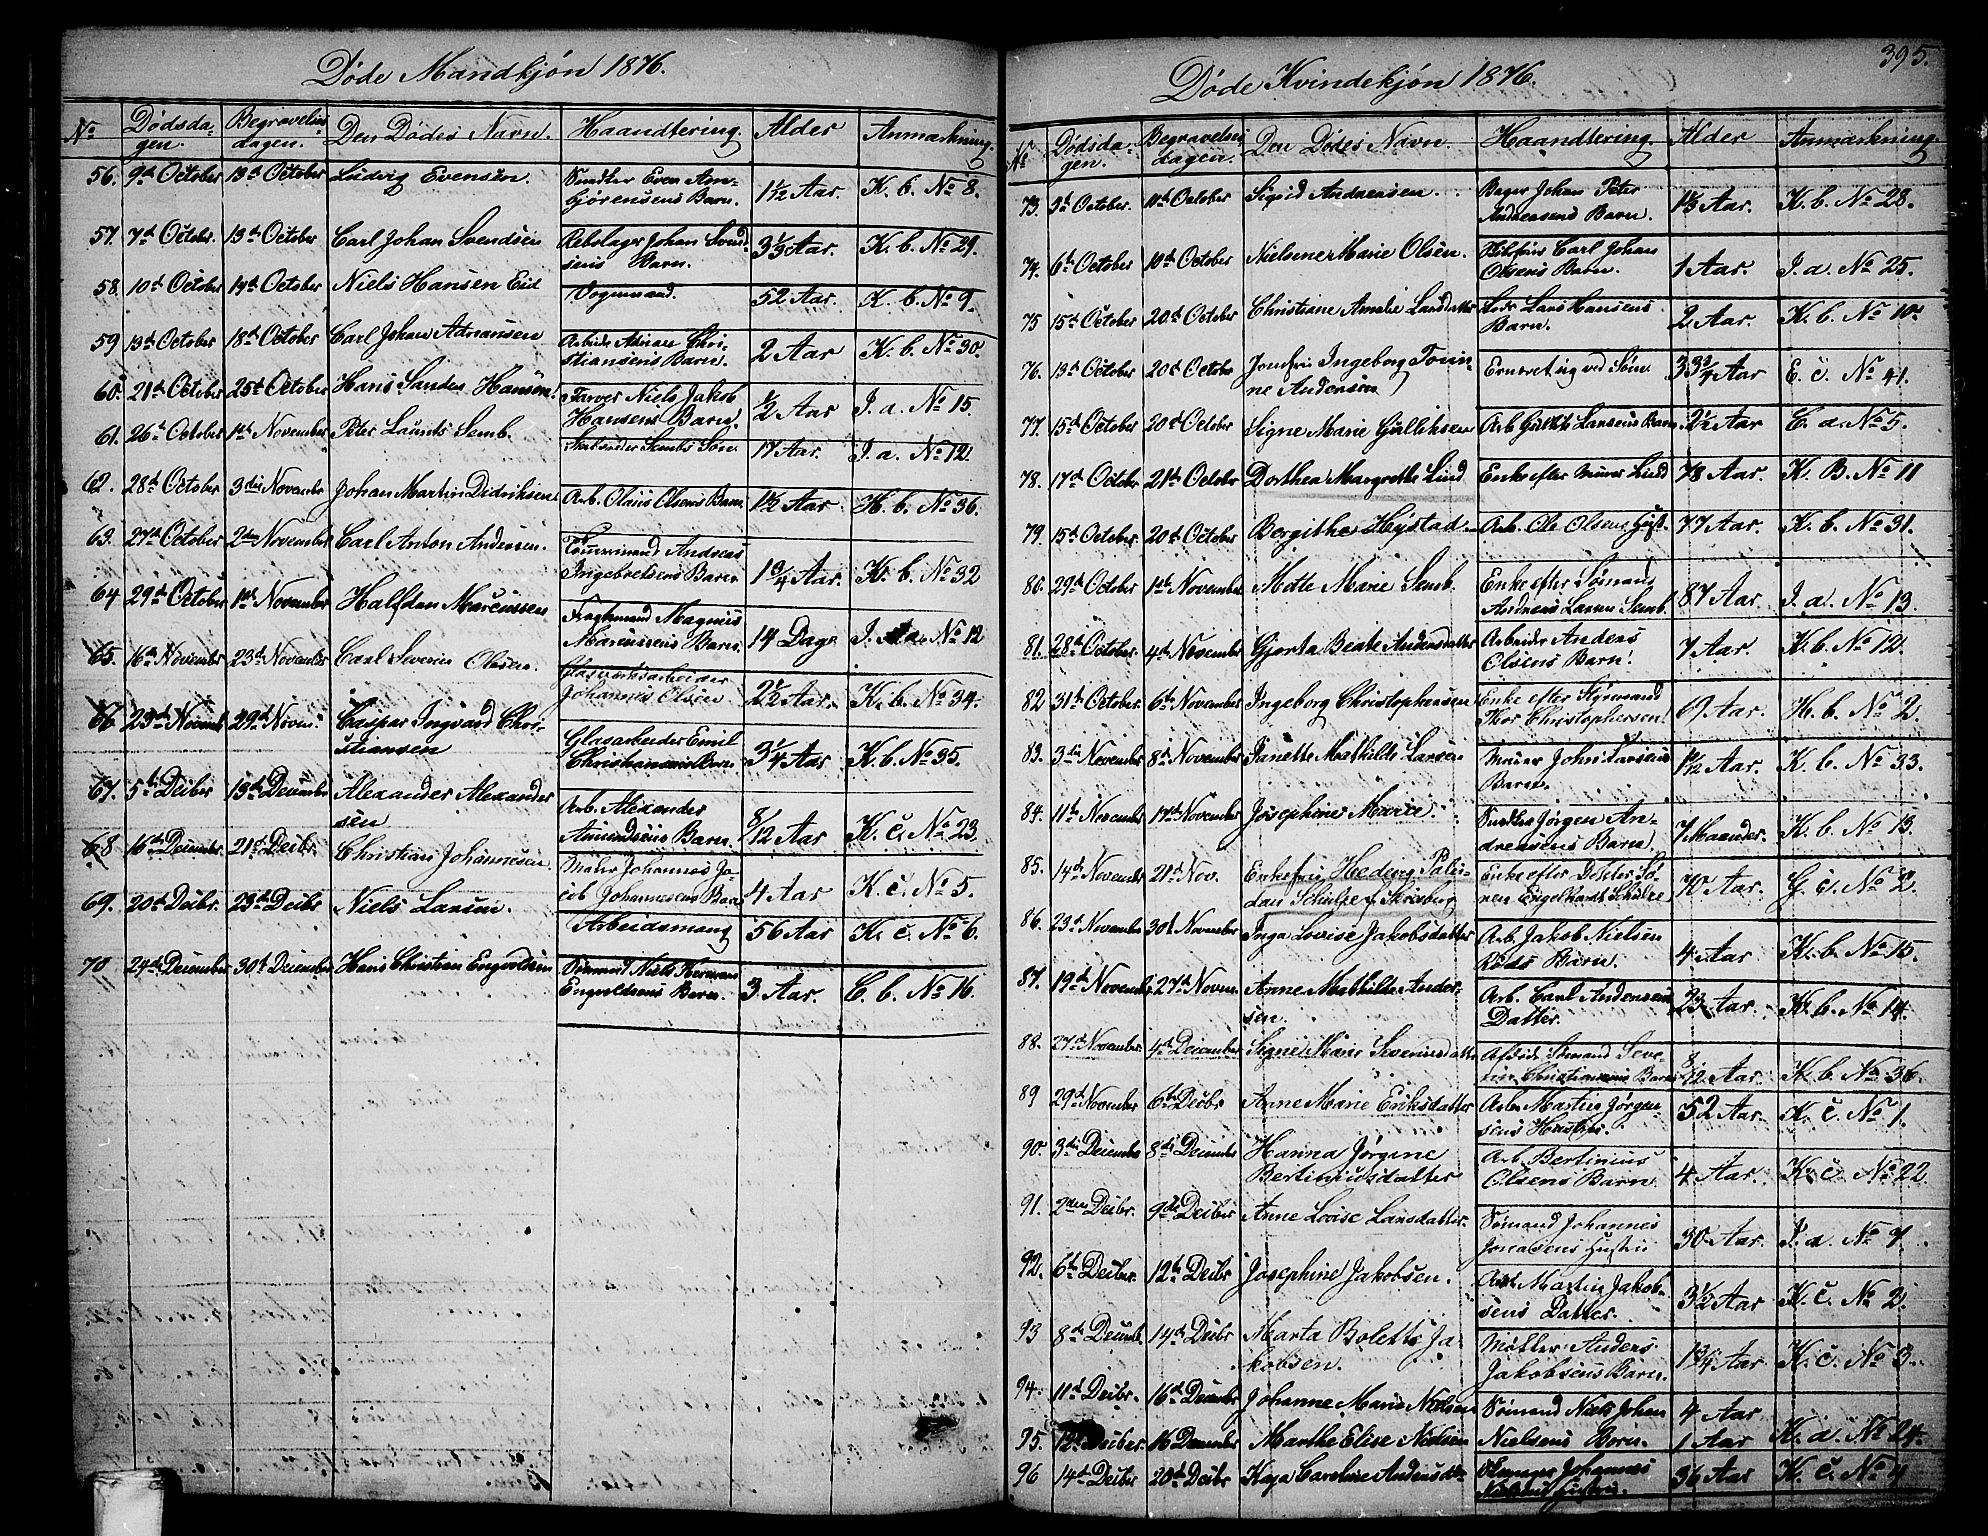 395.
Døde Mandkjøn 1876.
No Dødsdagen. Begravelsesdagen. Den Dødes Navn. Haandtering. Alder Anmærkning.
56. 9de October 13de October Ludvig Evensen. Even Barn. 1 1/2 Aar. K. b. No 8.
57. 7de October. 13de October Carl Johan Svendsen Rebslager Johan Svendsens Barn. 3 1/3 Aar. K. b. No 29.
58. 10de October 14de October Niels Hansen Eid Vognmand. 52 Aar. K. b. No 9.
59 13de October 18de October Carl Johan Adriansen Arbeider Adrian Christiansens Barn. 2 Aar K. b. No 30.
60. 21de October 25de October Hans Sander Hansen. Farver Niels Jakob Hansens Barn. 1/2 Aar I. a. No 15.
61. 26de October 1ste November Peter Laurits Semb. Sembs Søn. 17 Aar. I. a. No 12.
62. 28de October 3die November Johan Martin Didriksen Arb. Olaus Olsens Barn 1 1/2 Aar K. b. No 36.
63. 27de October 2den November Carl Anton Andersen. Tømmermand Andreas Ingebretsens Barn. 1 3/4 Aar. K. b. No 32
64 29de October 1ste November Halfdan Marcussen Fragtmand Magnus Marcussens Barn. 14 Dage I. a. No 12
65. 16de November 23de November Carl Severin Olsen. Glasværksarbeider Johannes Olsen 2 1/2 Aar. K. b. No 34.
66 23de Novemb 29de Novem. Caspar Ingvard Christiansen Glasarbeider Emil Christiansens Barn. 3 1/4 Aar K. b. No 35.
67. 5te Decbr 13de December Alexander Alexandersen Arb. Alexander Amundsens Barn. 8/12 Aar K. c. No 23.
68 16de December 21de Decbr. Christian Johannesen. Maler Johannes Jacob Johannesens Barn 4 Aar K. c. No 5.
69. 20de Decbr. 23de Decbr Niels Larsen. Arbeidsmand 56 Aar K. c. No 6.
70 24de December 30te December Hans Christian Engvoldsen Sømand Niels Herman Engvoldsens Barn. 3 Aar. C. b. No 16.
Døde Kvindekjøn 1876.
No Dødsdagen. Begravelsesdagen. Den Dødes Navn. Haandtering. Alder Anmærkning.
73. 5te October. 11te October Sigrid Andreasen. Bager Johan Peter Andreasens Barn. 1 1/3 Aar. K. b. No 28.
74. 6te October 10de October Nielsine Marie Olsen. Carl Johan Olsens Barn. 1 Aar. I. a. No 25.
75 15de October 20de October Christiane Amalie Larsdatter Lods Lars Hansens Barn. 2 Aar. K. b. No 10.
76. 13de October 20de October Jomfru Ingeborg Tominne Andersen Ernæret sig ved Søm. 33 3/4 Aar E. c. No 41.
77. 15de October 20de October Signe Marie Gulliksen Arb Gullik Larsens Barn 2 1/2 Aar C. a. No 5.
78. 17de October 21de October Dorthea Margrethe Lund Enke efter Murer Lund 78 Aar K. B. No 11
79. 15de October 20de October Borgithe Hystad Arb. Ole Olsens Hust. 77 Aar. K. b. No 31.
80. 29de October 1ste November Mette Marie Semb. Enke efter Sømand Andreas Larsen Semb. 87 Aar. I. a. No 13.
81. 28de October. 4de November Gjorta Beate Andersdatter Arbeider Anders Olsens Barn. 7 Aar. K. b. No 12.
82 31te October 6te November Ingeborg Christophersen Enke efter Styrmand Christophersen 69 Aar. H. b. No 2.
83. 3die November 8de November Janette Mathilde Larsen Murer John Larsens Barn. 1 1/12 Aar. K. b. No 33.
84. 11te November 17de November Josephine Marie. Jørgen Andreasens Barn 7 Maaneder. K. b. No 13.
85. 14de November 21de Nov. Enkefru Hedvig Paludan Schultze f. Enke efter Engelhardt Schultze 70 Aar. G. c. No 2.
86. 23de November 30te November Inga Lovise Jakobsdatter Arb. Jakob Nielsen Røds Barn. 4 Aar K. b. No 15.
87. 19de November 27de Novem. Anne Mathilde Andersen. Arb. Carl Andersens Datter. 23 Aar. K. b. No 14.
88. 27de November. 4de December Signe Marie Severinsdatter Afdøde Sømand Severin Christiansens Barn 8/12 Aar. K. b. No 36.
89 29de November 6te Decbr Anne Marie Eriksdatter Arb. Martin Jørgensens Hustru. 52 Aar. K. c. No 1.
90. 3die December 8de December Hanna Jørgine Bertiniusdatter Arb. Bertinius Olsens Barn 4 Aar. K. c. No 22
91. 2den Decbr. 9de Decber Anne Lovise Larsdatter. Sømand Johannes Jonassens Hustru 30 Aar. I. a. No 7.
92. 6te Decbr. 12te Decbr Josephine Jakobsen. Arb Martin Jakobsens Datter. 3 1/2 Aar K. c. No 2.
93 8de Decemb. 14de Decbr Marta Bolette Jakobsen. Møller Anders Jakobsens Barn. 1 3/4 Aar K. c. No 3.
94. 11te Decbr. 16de December Johanne Marie Nielsen Sømand Niels Johan 4 Aar.
95. 12te Decber. 16 December Marthe Elise Nielsen Nielsens Born. 1 Aar K. d. No 24.
96 14de Decbr. 20de Decbr Kaja Caroline Johannes Hustru. 36 Aar K. c. No 4